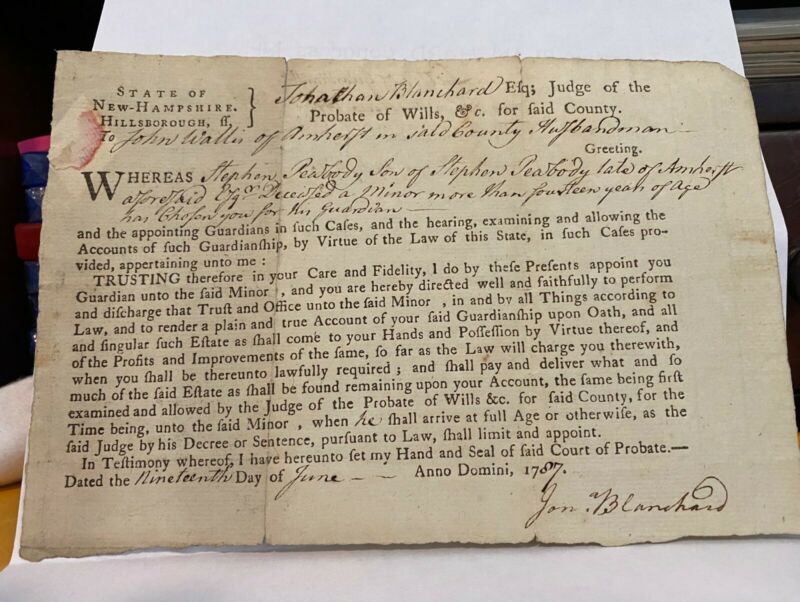 STATE OF
NEW-HAMPSHIRE.
HILLSBOROUGH, ſſ,
Jonathan Blanchard Eſq; Judge of the
Probate of Wills, &c. for ſaid County.
To John Wallis of Amherſt in said County Huſbandman
Greeting.
WHEREAS Stephen Peabody Son of Stephen Peabody late of Amherſt
aforesaid Esqr Deceased a Minor more than fourteen years of Age
has Chosen you for his Guardian
and the appointing Guardians in ſuch Caſes, and the hearing, examining and allowing the
Accounts of ſuch Guardianſhip, by Virtue of the Law of this State, in ſuch Caſes pro-
vided, appertaining unto me :
TRUSTING therefore in your Care and Fidelity, I do by theſe Preſents appoint you
Guardian unto the ſaid Minor , and you are hereby directed well and faithfully to perform
and diſcharge that Truſt and Office unto the ſaid Minor , in and by all Things according to
Law, and to render a plain and true Account of your ſaid Guardianſhip upon Oath, and all
and ſingular ſuch Eſtate as ſhall come to your Hands and Poſſeſſion by Virtue thereof, and
of the Profits and Improvements of the ſame, ſo far as the Law will charge you therewith,
when you ſhall be thereunto lawfully required ; and ſhall pay and deliver what and ſo
much of the ſaid Eſtate as ſhall be found remaining upon your Account, the ſame being firſt
examined and allowed by the Judge of the Probate of Wills &c. for ſaid County, for the
Time being, unto the ſaid Minor , when he ſhall arrive at full Age or otherwiſe, as the
ſaid Judge by his Decree or Sentence, purſuant to Law, ſhall limit and appoint.
In Teſtimony whereof, I have hereunto ſet my Hand and Seal of ſaid Court of Probate.—
Dated the Nineteenth Day of June — — Anno Domini, 1787.
Jona Blanchard